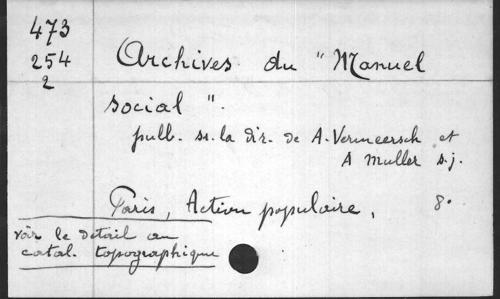 473
254
2
Archives du "Manuel
social".
publ. ss. la dir. de A. Vermeersch et
A Muller s.j.
Paris, Action populaire, 8°
voir le detail au
catal. topographique